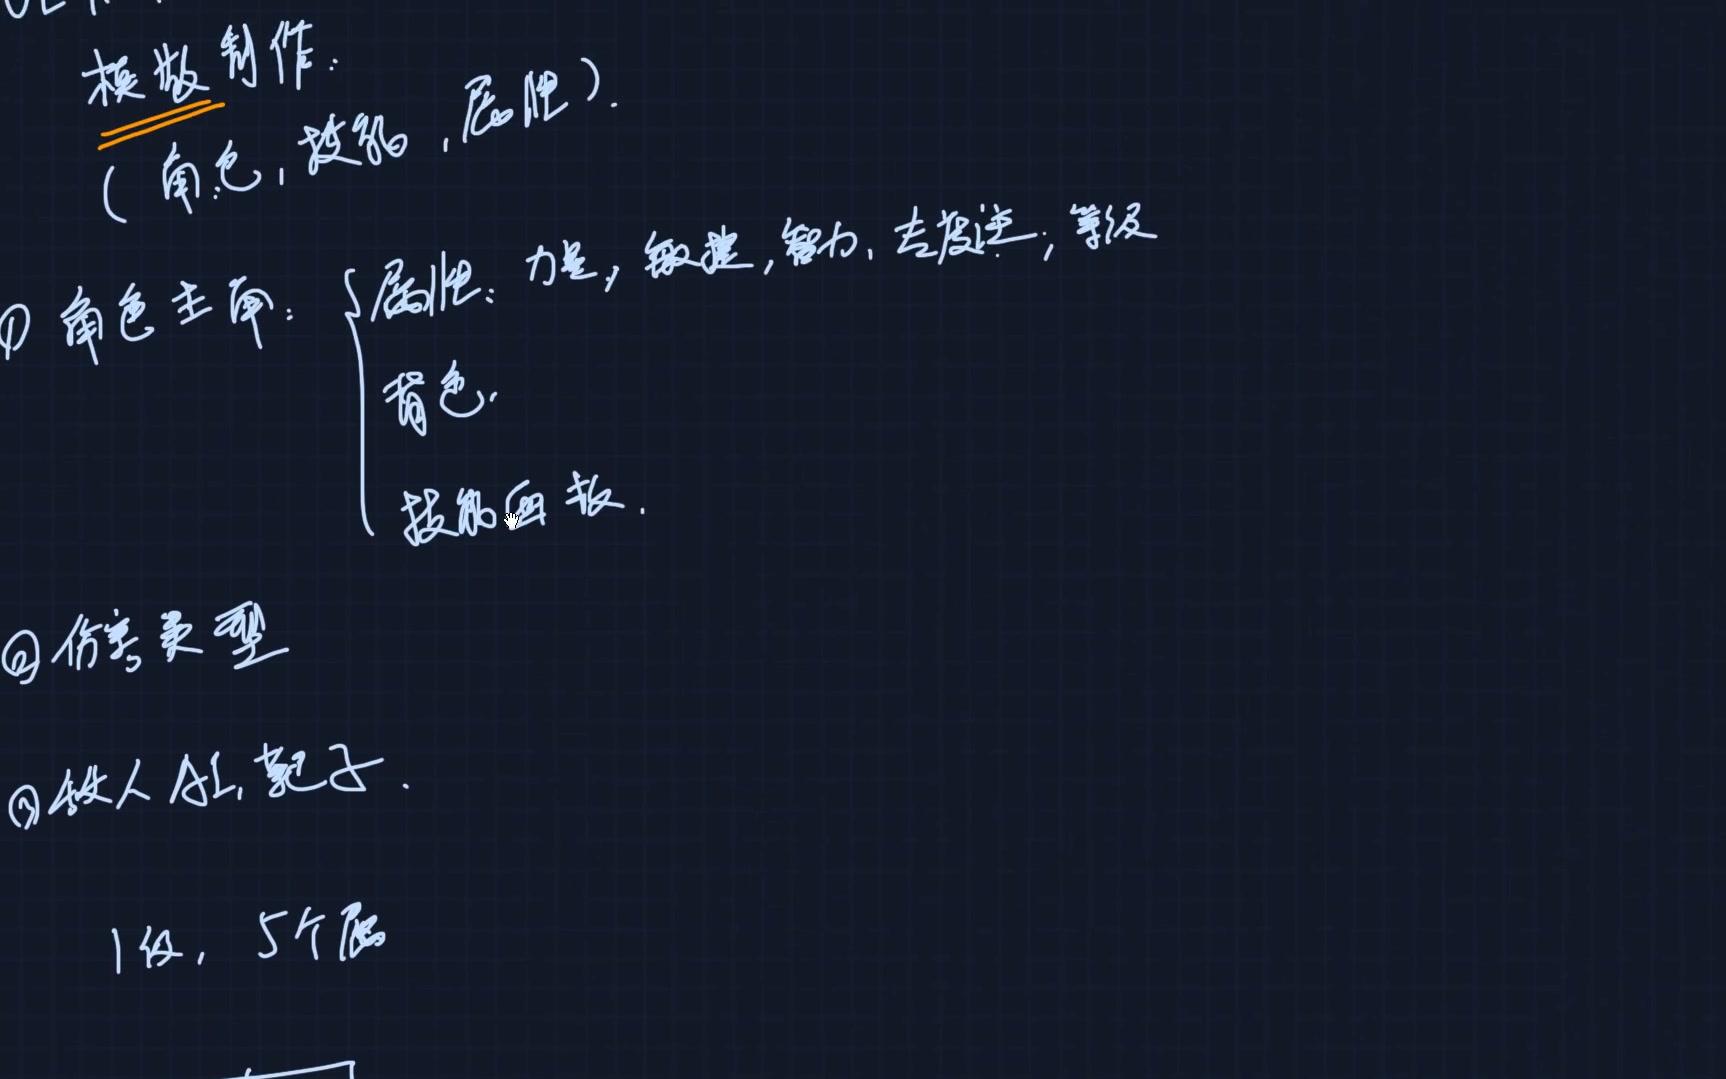 模版制作:
(角色,技能,属性).
① 角色主角: 属性: 力量, 敏捷, 智力, 等级
背包.
技能面板.
② 伤害类型
③ 敌人AI, 靶子.
1级, 5个属